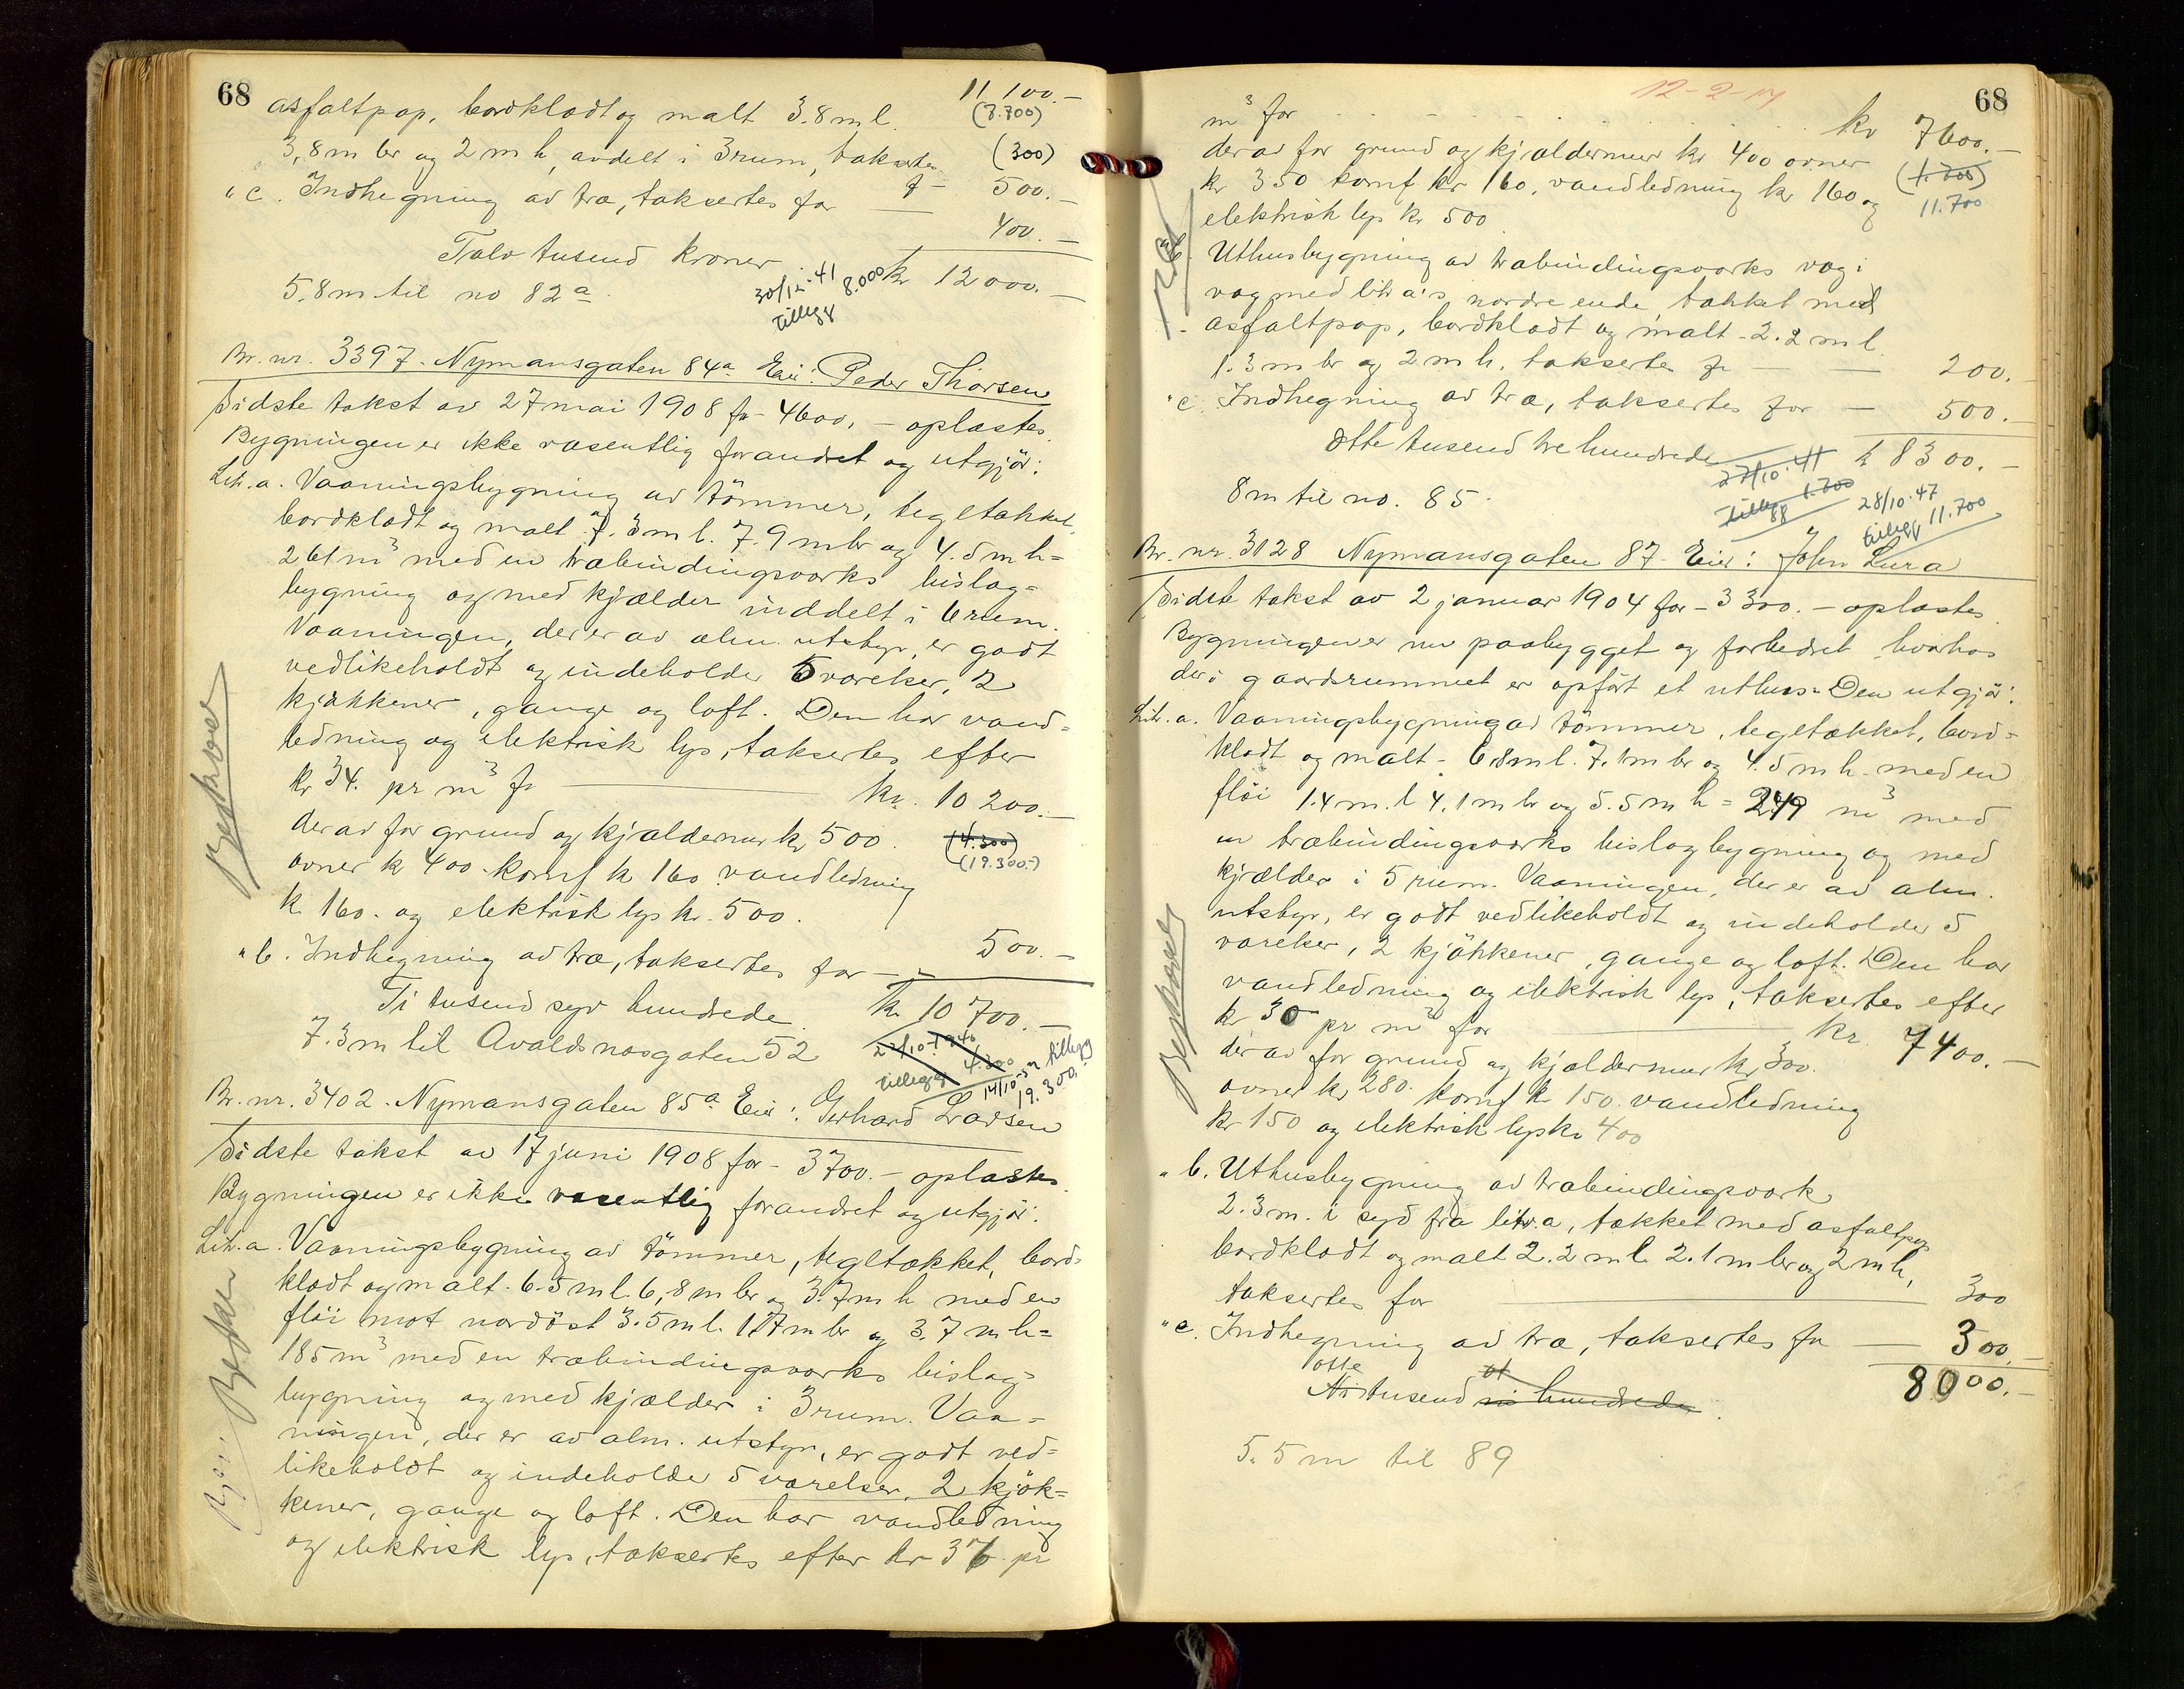 68
11 100.-
asfaltpap, bordklædt og malt 3.8 m l.
(7.700)
3,8 m br og 2 m h, avdelt i 3 rum, taksertes
(300)
f - 500.-
" c. Indhegning av træ, taksertes for — 400.-
Tolv tusend kroner kr 12 000.-
5,8 m til no 82a
30/12-41
tillegg 8.000
Br. nr. 3397. Nymansgaten 84a Eier: Peder Thorsen
Sidste takst av 27 mai 1908 for 4600.- oplæstes.
Bygningen er ikke væsentlig forandret og utgjör:
Litr. a. Vaaningsbygning av tömmer, tegltækket,
bordklædt og malt 7.3 m l. 7.9 m br og 4.5 m h =
261 m3 med en træbindingsværks bislag-
bygning og med kjælder inddelt i 6 rum.
Vaaningen, der er av alm. utstyr, er godt
vedlikeholdt og indeholder 5 værelser, 2
kjökkener, gange og loft. Den har vand-
ledning og elektrisk lys, taksertes efter
kr 34. pr m3 for — kr. 10 200.-
derav for grund og kjældermur kr 500.
(4.300)
(19.300.-)
ovner kr 400. komf kr 160 vandledning
kr. 160. og elektrisk lys kr. 500.
" b. Indhegning av træ, taksertes for - - 500.-
Ti tusend syv hundrede. kr. 10 700.-
7.3 m til Avaldsnæsgaten 52
22/10-1946
tillegg 4.300
14/10-52 tillegg
19.300.-
Br. nr. 3402. Nymansgaten 85a Eier: Gerhard Larsen
Sidste takst av 17 juni 1908 for - 3700.- oplæstes.
Bygningen er ikke væsentlig forandret og utgjör:
Litr. a. Vaaningsbygning av tömmer, tegltækket, bord-
klædt og malt. 6.5 m l. 6,8 m br og 3.7 m h med en
flöi mot nordöst 3.5 m l. 1.7 m br og 3.7 m h =
185 m3 med en træbindingsværks bislag-
bygning og med kjælder i 3 rum. Vaa-
ningen, der er av alm. utstyr, er godt ved-
likeholdt og indeholder 5 værelser, 2 kjök-
kener, gange og loft. Den har vandledning
og elektrisk lys, taksertes efter kr 36 pr
Beskaer
68
12-2-17
m3 for . . . . . . . kr 7600.-
derav for grund og kjældermur kr 400 ovner
(1.200)
kr 350 komf kr 160, vandledning kr 160 og
11.700
elektrisk lys kr 500
" b. Uthusbygning av træbindingsværks væg i
væg med litr a's nordre ende tækket med
asfaltpap, bordklædt og malt - 2.2 m l.
1.3 m br og 2 m h. taksertes for — — 200.-
" c. Indhegning av træ, taksertes for — 500.-
Otte tusend tre hundrede kr 8300.-
27/10-41
tillegg 1.200
28/10-47
tillegg 11.700
8 m til no. 85.
Br. nr. 3128 Nymansgaten 87. Eier: John Lura
Sidste takst av 2 januar 1904 for - 3300.- oplæstes
Bygningen er nu paabygget og forbedret hvorhos
der i gaardsrummet er opfört et uthus. Den utgjör:
Litr. a. Vaaningsbygning av tömmer, tegltækket, bord-
klædt og malt - 6.8 m l. 7.1 m br og 4.5 m h. med en
flöi 1.4 m. l 4.1 m br og 5.5 m h = 249 m3 med
en træbindingsværks bislagbygning og med
kjælder i 5 rum. Vaaningen, der er av alm.
utstyr, er godt vedlikeholdt og indeholder 5
værelser, 2 kjökkener, gange og loft. Den har
vandledning og elektrisk lys, taksertes efter
kr. 30 pr m3 for — kr. 7400.-
derav for grund og kjældermur kr 300.
ovner kr 280. komf kr 150 vandledning
kr 150 og elektrisk lys kr 400
" b. Uthusbygning av træbindingsværk
2.3 m. i syd fra litr. a, tækket med asfaltpap
bordklædt og malt 2.2 m l. 2.1 m br og 2 m h,
taksertes for — 300
" c. Indhegning av træ, taksertes for — 300.-
otte
Ni tusend ni hundrede. 8000.-
5.5 m til 89
Beskaer